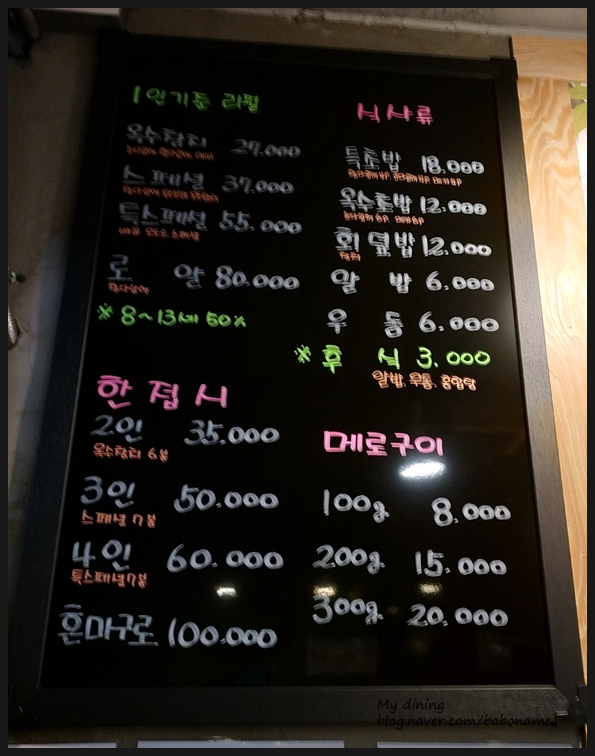 1인기준 리필
옥수참치 27.000
스페셜 37.000
특스페셜 55.000
로얄 80.000
참다랑어
※ 8~13세 50%
한접시
2인 35.000
옥수참치 6봉
3인 50.000
스페셜 7봉
4인 60.000
특스페셜 7봉
혼마구로 100.000
식사류
특초밥 18.000
옥수초밥 12.000
회덮밥 12.000
참치
알밥 6.000
우동 6.000
※ 후식 3.000
알밥, 우동, 홍합탕
메로구이
100g 8.000
200g 15.000
300g 20.000
My dining